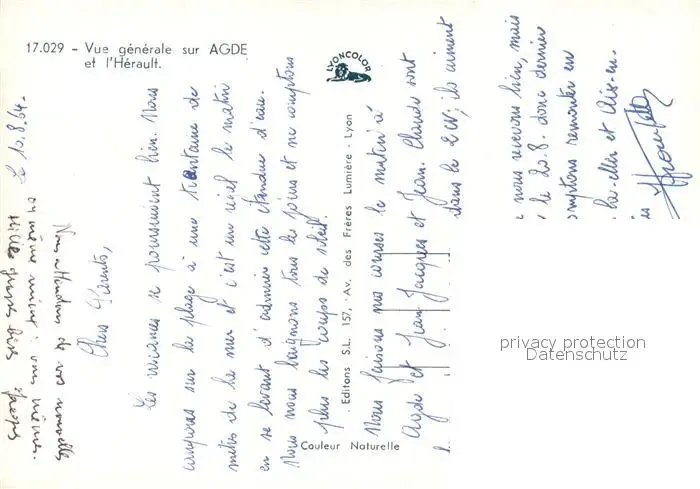 17.029 - Vue générale sur AGDE
et l'Hérault.
LYONCOLOR
Le 10.8.64.
Chers Parents,
Les vacances se poursuivent bien. Nous
campons sur la plage à une trentaine de
mètres de la mer et c'est un réveil le matin
en se levant d'admirer cette étendue d'eau.
Nous nous baignons tous les jours et ne comptons
plus les coups de soleil.
Nous faisons nos courses le matin à
Agde et Jean-Jacques et Jean-Claude sont
dans le 2 CV; ils aiment
nous recevons bien, mais
le 20.8. donc dernier
comptons remonter en
et Aix-en-
Nous attendons de vos nouvelles
en même
Mille gros bis
Editions S.L. 157, Av. des Frères Lumière - Lyon
Couleur Naturelle
privacy protection
Datenschutz